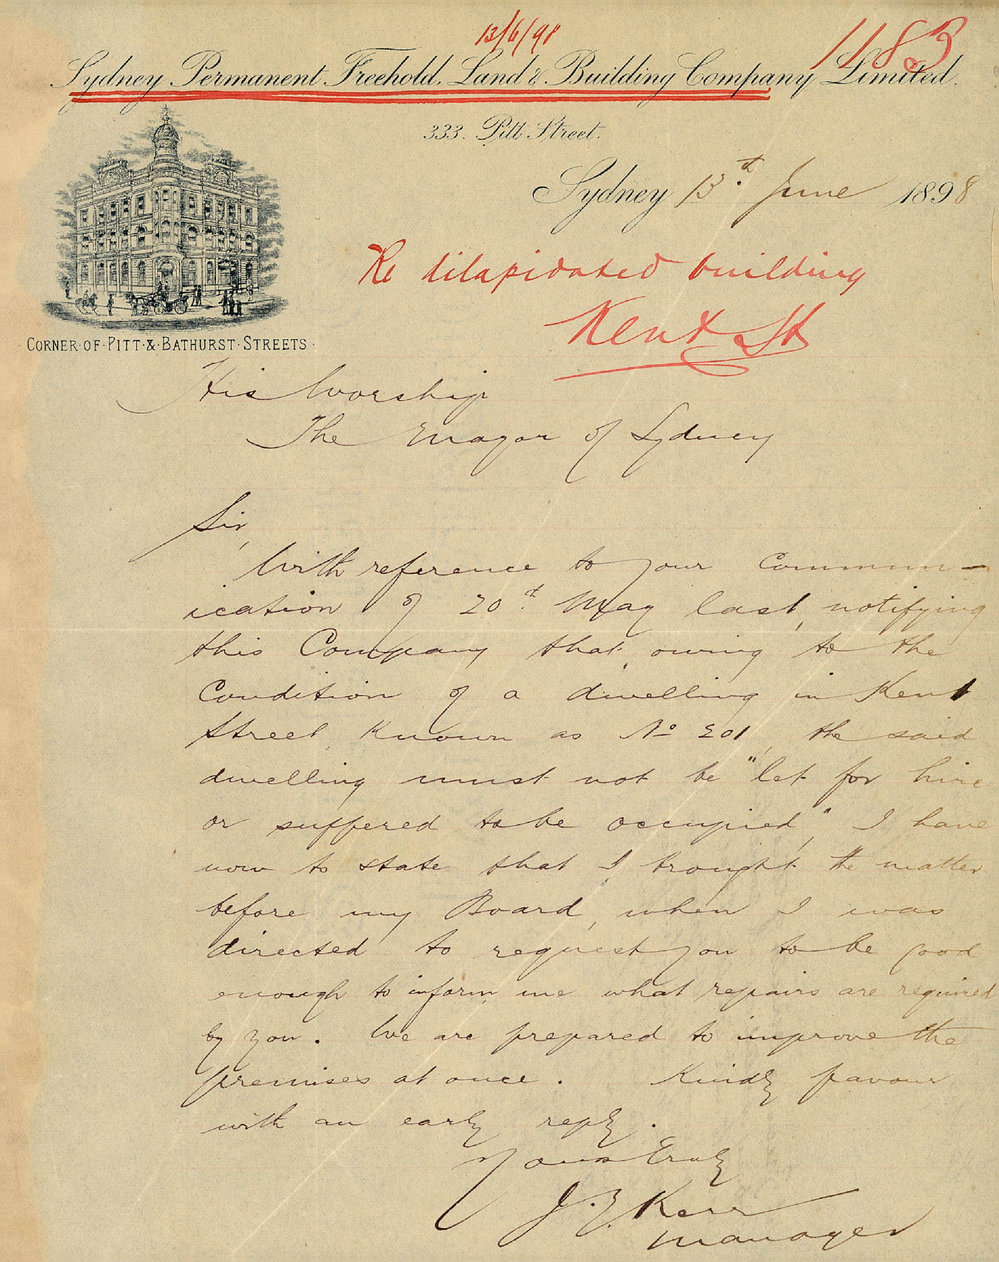 13/6/98
1183
Sydney Permanent Freehold Land & Building Company Limited.
333. Pitt Street.
Sydney 13th June 1898
Re dilapidated building
Kent St
CORNER·OF·PITT·&·BATHURST·STREETS·
His Worship
The Mayor of Sydney
Sir,
With reference to your Commun-
ication of 20th May last, notifying
this Company that, owing to the
Condition of a dwelling in Kent
Street, known as No 201, the said
dwelling must not be "let for hire
or suffered to be occupied," I have
now to state that I brought the matter
before my Board, when I was
directed to request you to be good
enough to inform me what repairs are required
by you. We are prepared to improve the
premises at once. Kindly favour
with an early reply.
Yours truly
Kerr
Manager